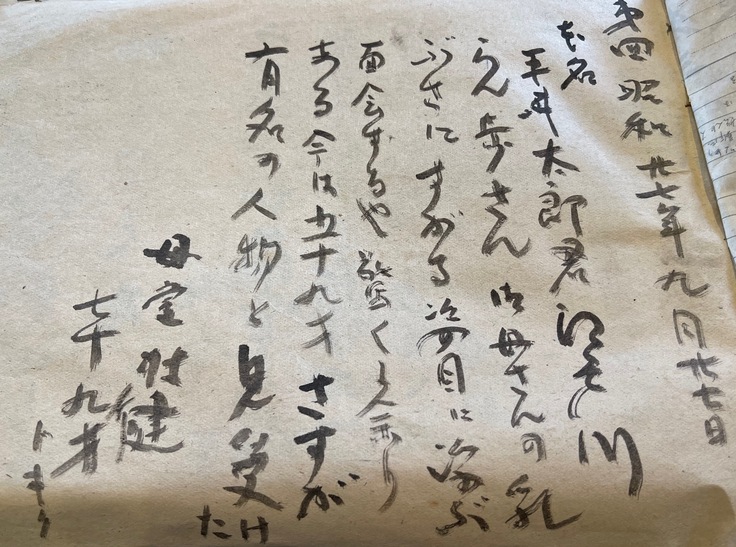 四 昭和廿七年九月廿七日
本名
平井太郎君 江戸川
らん歩さん 御母さんの乳
ぶさにすがる 姿目に浮ぶ
面会するや驚く
ある今は五十九才さすが
有名の人物と見受けた
母堂 健
七十九才